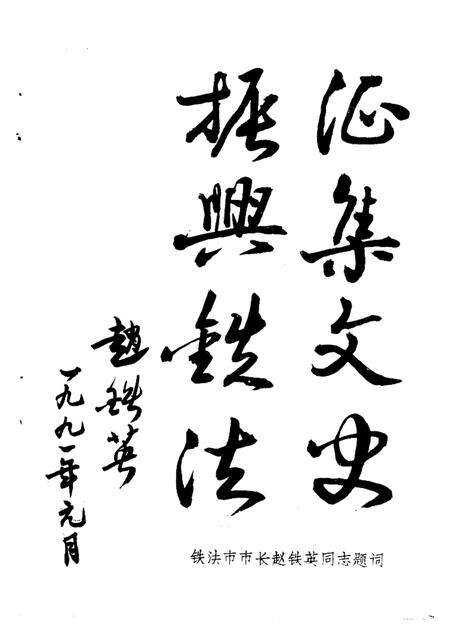 征集文史
振興鉄法
趙鉄英
一九九一年元月
铁法市市长赵铁英同志题词